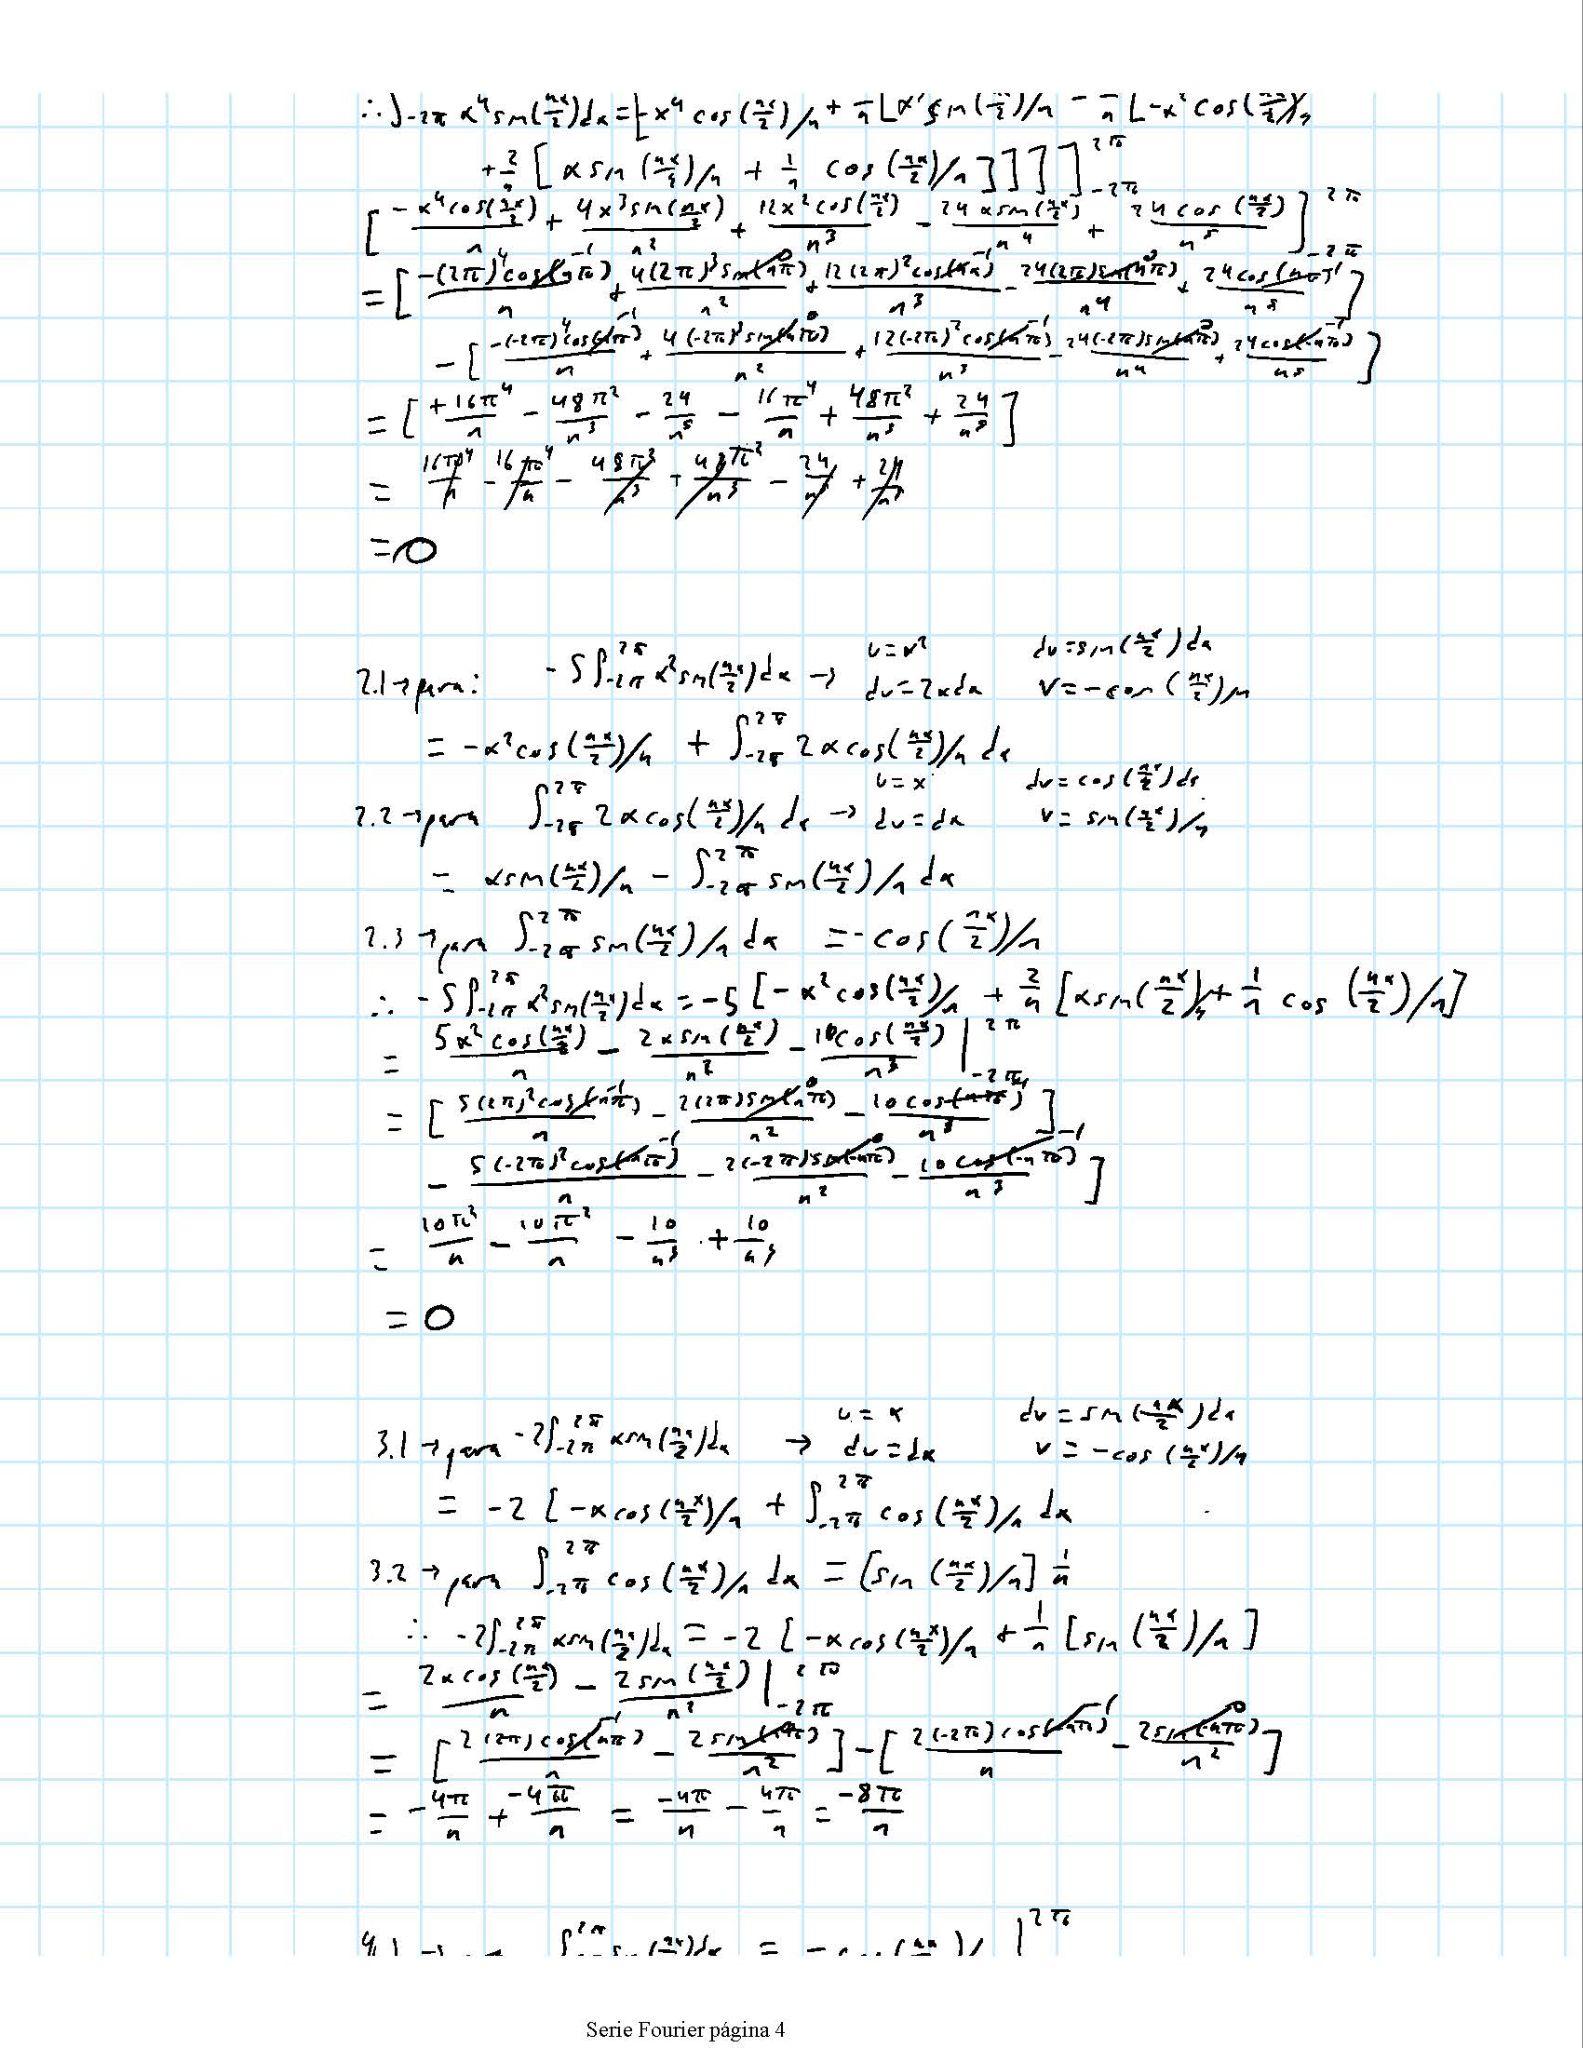 ∴ ∫-2π x⁴sin(nx/2)dx = [-x⁴cos(nx/2)/n + /n [x³sin(nx/2)/n - /n [-x²cos(nx/2)/n
+ 2/n [x sin(nx/2)/n + 1/n cos(nx/2)/n]]]]-2π^2π
[-x⁴cos(nx/2)/n + 4x³sin(nx/2)/n² + 12x²cos(nx/2)/n³ - 24xsin(nx/2)/n⁴ + 24cos(nx/2)/n⁵]-2π^2π
= [-(2π)⁴cos(nπ)^-1/n + 4(2π)³sin(nπ)^0/n² + 12(2π)²cos(nπ)^-1/n³ - 24(2π)sin(nπ)^0/n⁴ + 24cos(nπ)^-1/n⁵]
- [-(-2π)⁴cos(-nπ)^-1/n + 4(-2π)³sin(-nπ)^0/n² + 12(-2π)²cos(-nπ)^-1/n³ - 24(-2π)sin(-nπ)^0/n⁴ + 24cos(-nπ)^-1/n⁵]
= [+16π⁴/n - 48π²/n³ - 24/n⁵ - 16π⁴/n + 48π²/n³ + 24/n⁵]
= 16π⁴/n - 16π⁴/n - 48π²/n³ + 48π²/n³ - 24/n⁵ + 24/n⁵
= 0
2.1 → para: -5∫-2π^2π x²sin(nx/2)dx → u=x² dv=sin(nx/2)dx
du=2xdx v=-cos(nx/2)/n
= -x²cos(nx/2)/n + ∫-2π^2π 2xcos(nx/2)/n dx
2.2 → para ∫-2π^2π 2xcos(nx/2)/n dx → u=x dv=cos(nx/2)dx
du=dx v=sin(nx/2)/n
= xsin(nx/2)/n - ∫-2π^2π sin(nx/2)/n dx
2.3 → para ∫-2π^2π sin(nx/2)/n dx = -cos(nx/2)/n
∴ -5∫-2π^2π x²sin(nx/2)dx = -5[-x²cos(nx/2)/n + 2/n [xsin(nx/2)/n + 1/n cos(nx/2)/n]
= 5x²cos(nx/2)/n - 2xsin(nx/2)/n² - 10cos(nx/2)/n³ |-2π^2π
= [5(2π)²cos(nπ)^-1/n - 2(2π)sin(nπ)^0/n² - 10cos(nπ)^-1/n³]
- 5(-2π)²cos(-nπ)^-1/n - 2(-2π)sin(-nπ)^0/n² - 10cos(-nπ)^-1/n³]
= 10π²/n - 10π²/n - 10/n³ + 10/n³
= 0
3.1 → para -2∫-2π^2π xsin(nx/2)dx → u=x dv=sin(nx/2)dx
du=dx v=-cos(nx/2)/n
= -2[-xcos(nx/2)/n + ∫-2π^2π cos(nx/2)/n dx
3.2 → para ∫-2π^2π cos(nx/2)/n dx = [sin(nx/2)/n] 1/n
∴ -2∫-2π^2π xsin(nx/2)dx = -2[-xcos(nx/2)/n + 1/n [sin(nx/2)/n]
= 2xcos(nx/2)/n - 2sin(nx/2)/n² |-2π^2π
= [2(2π)cos(nπ)^-1/n - 2sin(nπ)^0/n²] - [2(-2π)cos(-nπ)^-1/n - 2sin(-nπ)^0/n²]
= -4π/n + -4π/n = -4π/n - 4π/n = -8π/n
Serie Fourier página 4